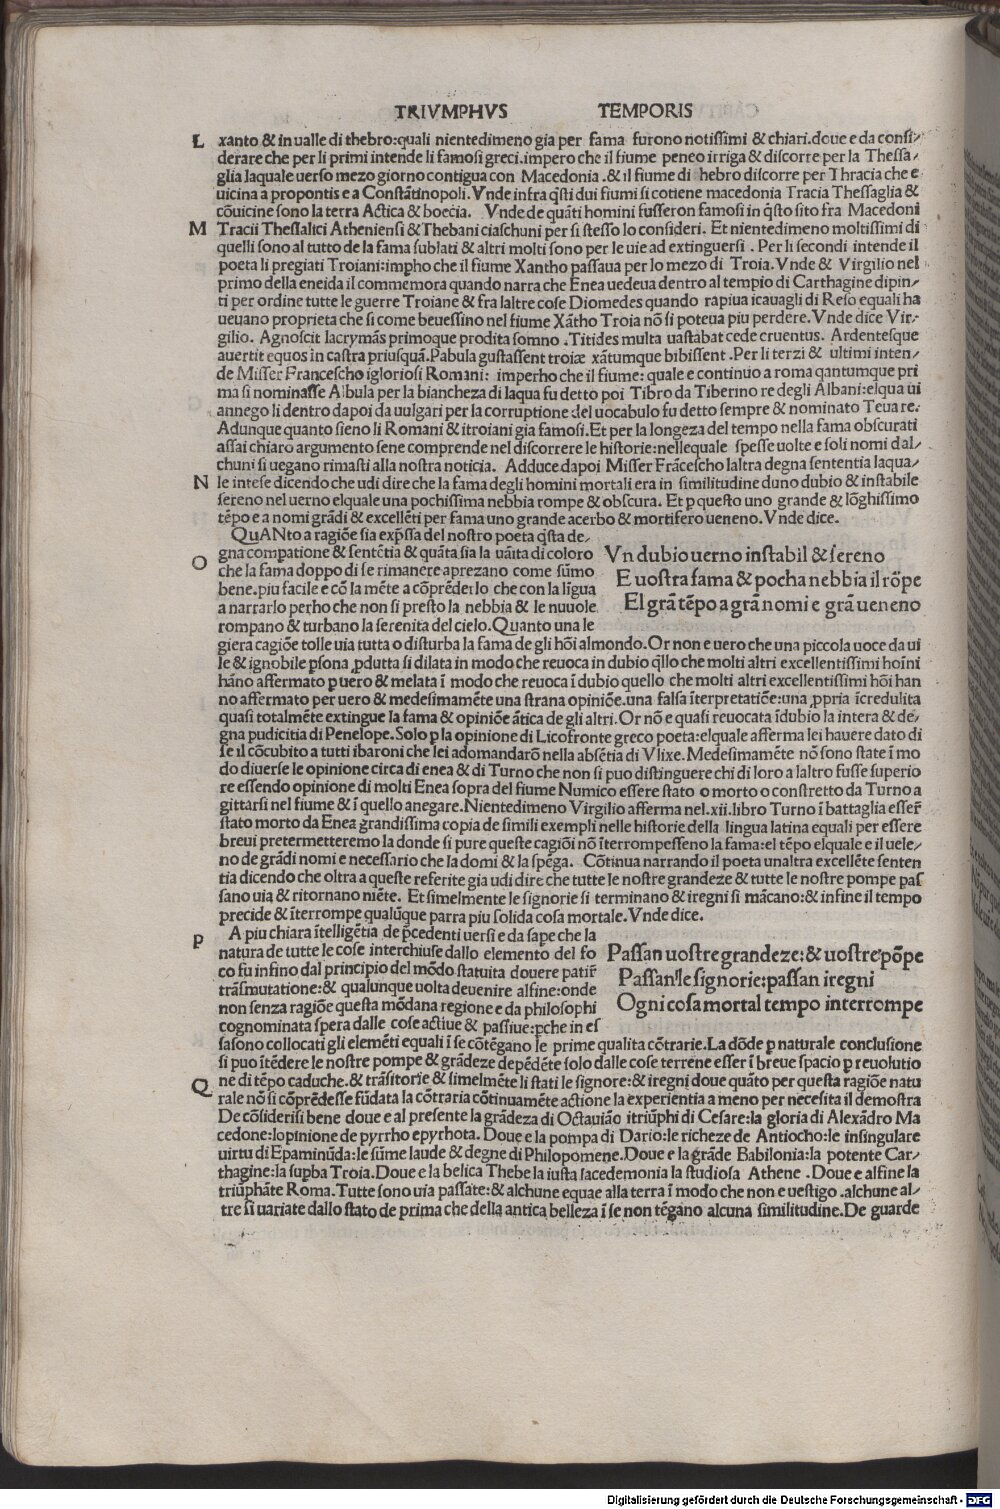 TRIVMPHVS TEMPORIS
L xanto & in ualle di thebro:quali nientedimeno gia per fama furono notissimi & chiari.doue e da consi-
derare che per li primi intende li famosi greci.impero che il fiume peneo irriga & discorre per la Thessa-
glia laquale uerso mezo giorno contigua con Macedonia .& il fiume di hebro discorre per Thracia che e
uicina a propontis e a Constãtinopoli. Vnde infra q̃sti dui fiumi si cõtiene macedonia Tracia Thessaglia &
cõuicine sono la terra Actica & boecia. Vnde de quãti homini fusseron famosi in q̃sto sito fra Macedoni
M Tracii Thessalici Atheniensi & Thebani ciaschuni per si stesso lo consideri. Et nientedimeno moltissimi di
quelli sono al tutto de la fama sublati & altri molti sono per le uie ad extinguersi . Per li secondi intende il
poeta li pregiati Troiani:impho che il fiume Xantho passaua per lo mezo di Troia.Vnde & Virgilio nel
primo della eneida il commemora quando narra che Enea uedeua dentro al tempio di Carthagine dipin-
ti per ordine tutte le guerre Troiane & fra laltre cose Diomedes quando rapiua icauagli di Reso equali ha
ueuano proprieta che si come beuessino nel fiume Xãtho Troia nõ si poteua piu perdere.Vnde dice Vir-
gilio. Agnoscit lacrymãs primoque prodita somno .Titides multa uastabat cede cruentus. Ardentesque
auertit equos in castra priusquã.Pabula gustassent troiæ xãtumque bibissent .Per li terzi & ultimi inten-
de Misser Francescho igloriosi Romani: imperho che il fiume: quale e continuo a roma qantumque pri
ma si nominasse Albula per la biancheza di laqua fu detto poi Tibro da Tiberino re degli Albani:elqua ui
annego li dentro dapoi da uulgari per la corruptione del uocabulo fu detto sempre & nominato Teuare.
Adunque quanto sieno li Romani & itroiani gia famosi.Et per la longeza del tempo nella fama obscurati
assai chiaro argumento sene comprende nel discorrere le historie:nellequale spesse uolte e soli nomi dal-
chuni si uegano rimasti alla nostra noticia. Adduce dapoi Misser Frãcescho laltra degna sententia laqua-
N le intese dicendo che udi dire che la fama degli homini mortali era in similitudine duno dubio & instabile
sereno nel uerno elquale una pochissima nebbia rompe & obscura. Et p questo uno grande & lõghissimo
tẽpo e a nomi grãdi & excellẽti per fama uno grande acerbo & mortifero ueneno.Vnde dice.
QuANto a ragiõe sia exp̃ssa del nostro poeta q̃sta de-
O gna compatione & sentẽtia & quãta sia la uãita di coloro
che la fama doppo di se rimanere aprezano come sũmo
bene.piu facile e cõ la mẽte a cõprẽderlo che con la lĩgua
a narrarlo perho che non si presto la nebbia & le nuuole
rompano & turbano la serenita del cielo.Quanto una le
Vn dubio uerno instabil & sereno
E uostra fama & pocha nebbia il rõpe
El grã tẽpo a grã nomi e grã ueneno
giera cagiõe tolle uia tutta o disturba la fama de gli hõi almondo.Or non e uero che una piccola uoce da ui
le & ignobile psona pdutta si dilata in modo che reuoca in dubio q̃llo che molti altri excellentissimi hoĩni
hãno affermato p uero & melata ĩ modo che reuoca ĩ dubio quello che molti altri excellentissimi hõi han
no affermato per uero & medesimamẽte una strana opiniõe.una falsa ĩterpretatiõe:una ppria ĩcredulita
quasi totalmẽte extingue la fama & opiniõe ãtica de gli altri.Or nõ e quasi reuocata ĩdubio la intera & de-
gna pudicitia di Penelope.Solo p la opinione di Licofronte greco poeta:elquale afferma lei hauere dato di
se il cõcubito a tutti ibaroni che lei adomandarõ nella absẽtia di Vlixe.Medesimamẽte nõ sono state ĩ mo
do diuerse le opinione circa di enea & di Turno che non si puo distinguere chi di loro a laltro fusse superio
re essendo opinione di molti Enea sopra del fiume Numico essere stato o morto o constretto da Turno a
gittarsi nel fiume & ĩ quello anegare.Nientedimeno Virgilio afferma nel.xii.libro Turno ĩ battaglia esser̃
stato morto da Enea grandissima copia de simili exempli nelle historie della lingua latina equali per essere
breui pretermetteremo la donde si pure queste cagiõi nõ ĩterrompesseno la fama:el tẽpo elquale e il uele-
no de grãdi nomi e necessario che la domi & la spẽga. Cõtinua narrando il poeta unaltra excellẽte senten
tia dicendo che oltra a queste referite gia udi dire che tutte le nostre grandeze & tutte le nostre pompe pas
sano uia & ritornano niẽte. Et simelmente le signorie si terminano & iregni si mãcano:& infine il tempo
precide & ĩterrompe qualũque parra piu solida cosa mortale.Vnde dice.
P A piu chiara ĩtelligẽtia de p̃cedenti uersi e da sape che la
natura de tutte le cose interchiuse dallo elemento del fo
co fu infino dal principio del mõdo statuita douere patir̃
trãsmutatione:& qualunque uolta deuenire alfine:onde
non senza ragiõe questa mõdana regione e da philosophi
cognominata spera dalle cose actiue & passiue:pche in es
Passan uostre grandeze:& uostre põpe
Passan le signorie:passan iregni
Ogni cosa mortal tempo interrompe
sa sono collocati gli elemẽti equali ĩ se cõtẽgano le prime qualita cõtrarie.La dõde p naturale conclusione
si puo ĩtẽdere le nostre pompe & grãdeze depẽdẽte solo dalle cose terrene esser ĩ breue spacio p reuolutio
Q ne di tẽpo caduche.& trãsitorie & simelmẽte li stati le signore:& iregni doue quãto per questa ragiõe natu
rale nõ si cõprẽdesse fũdata la cõtraria cõtinuamẽte actione la experientia a meno per necesita il demostra
De cõsiderisi bene doue e al presente la grãdeza di Octauião itriũphi di Cesare:la gloria di Alexãdro Ma
cedone:lopinione de pyrrho epyrhota. Doue e la pompa di Dario:le richeze de Antiocho:le insingulare
uirtu di Epaminũda:le sũme laude & degne di Philopomene.Doue e la grãde Babilonia:la potente Car-
thagine:la supba Troia.Doue e la belica Thebe la iusta lacedemonia la studiosa Athene .Doue e alfine la
triũphãte Roma.Tutte sono uia passate:& alchune equae alla terra ĩ modo che non e uestigo .alchune al-
tre si uariate dallo stato de prima che della antica belleza ĩ se non tẽgano alcuna similitudine.De guarde
Digitalisierung gefördert durch die Deutsche Forschungsgemeinschaft - DFG